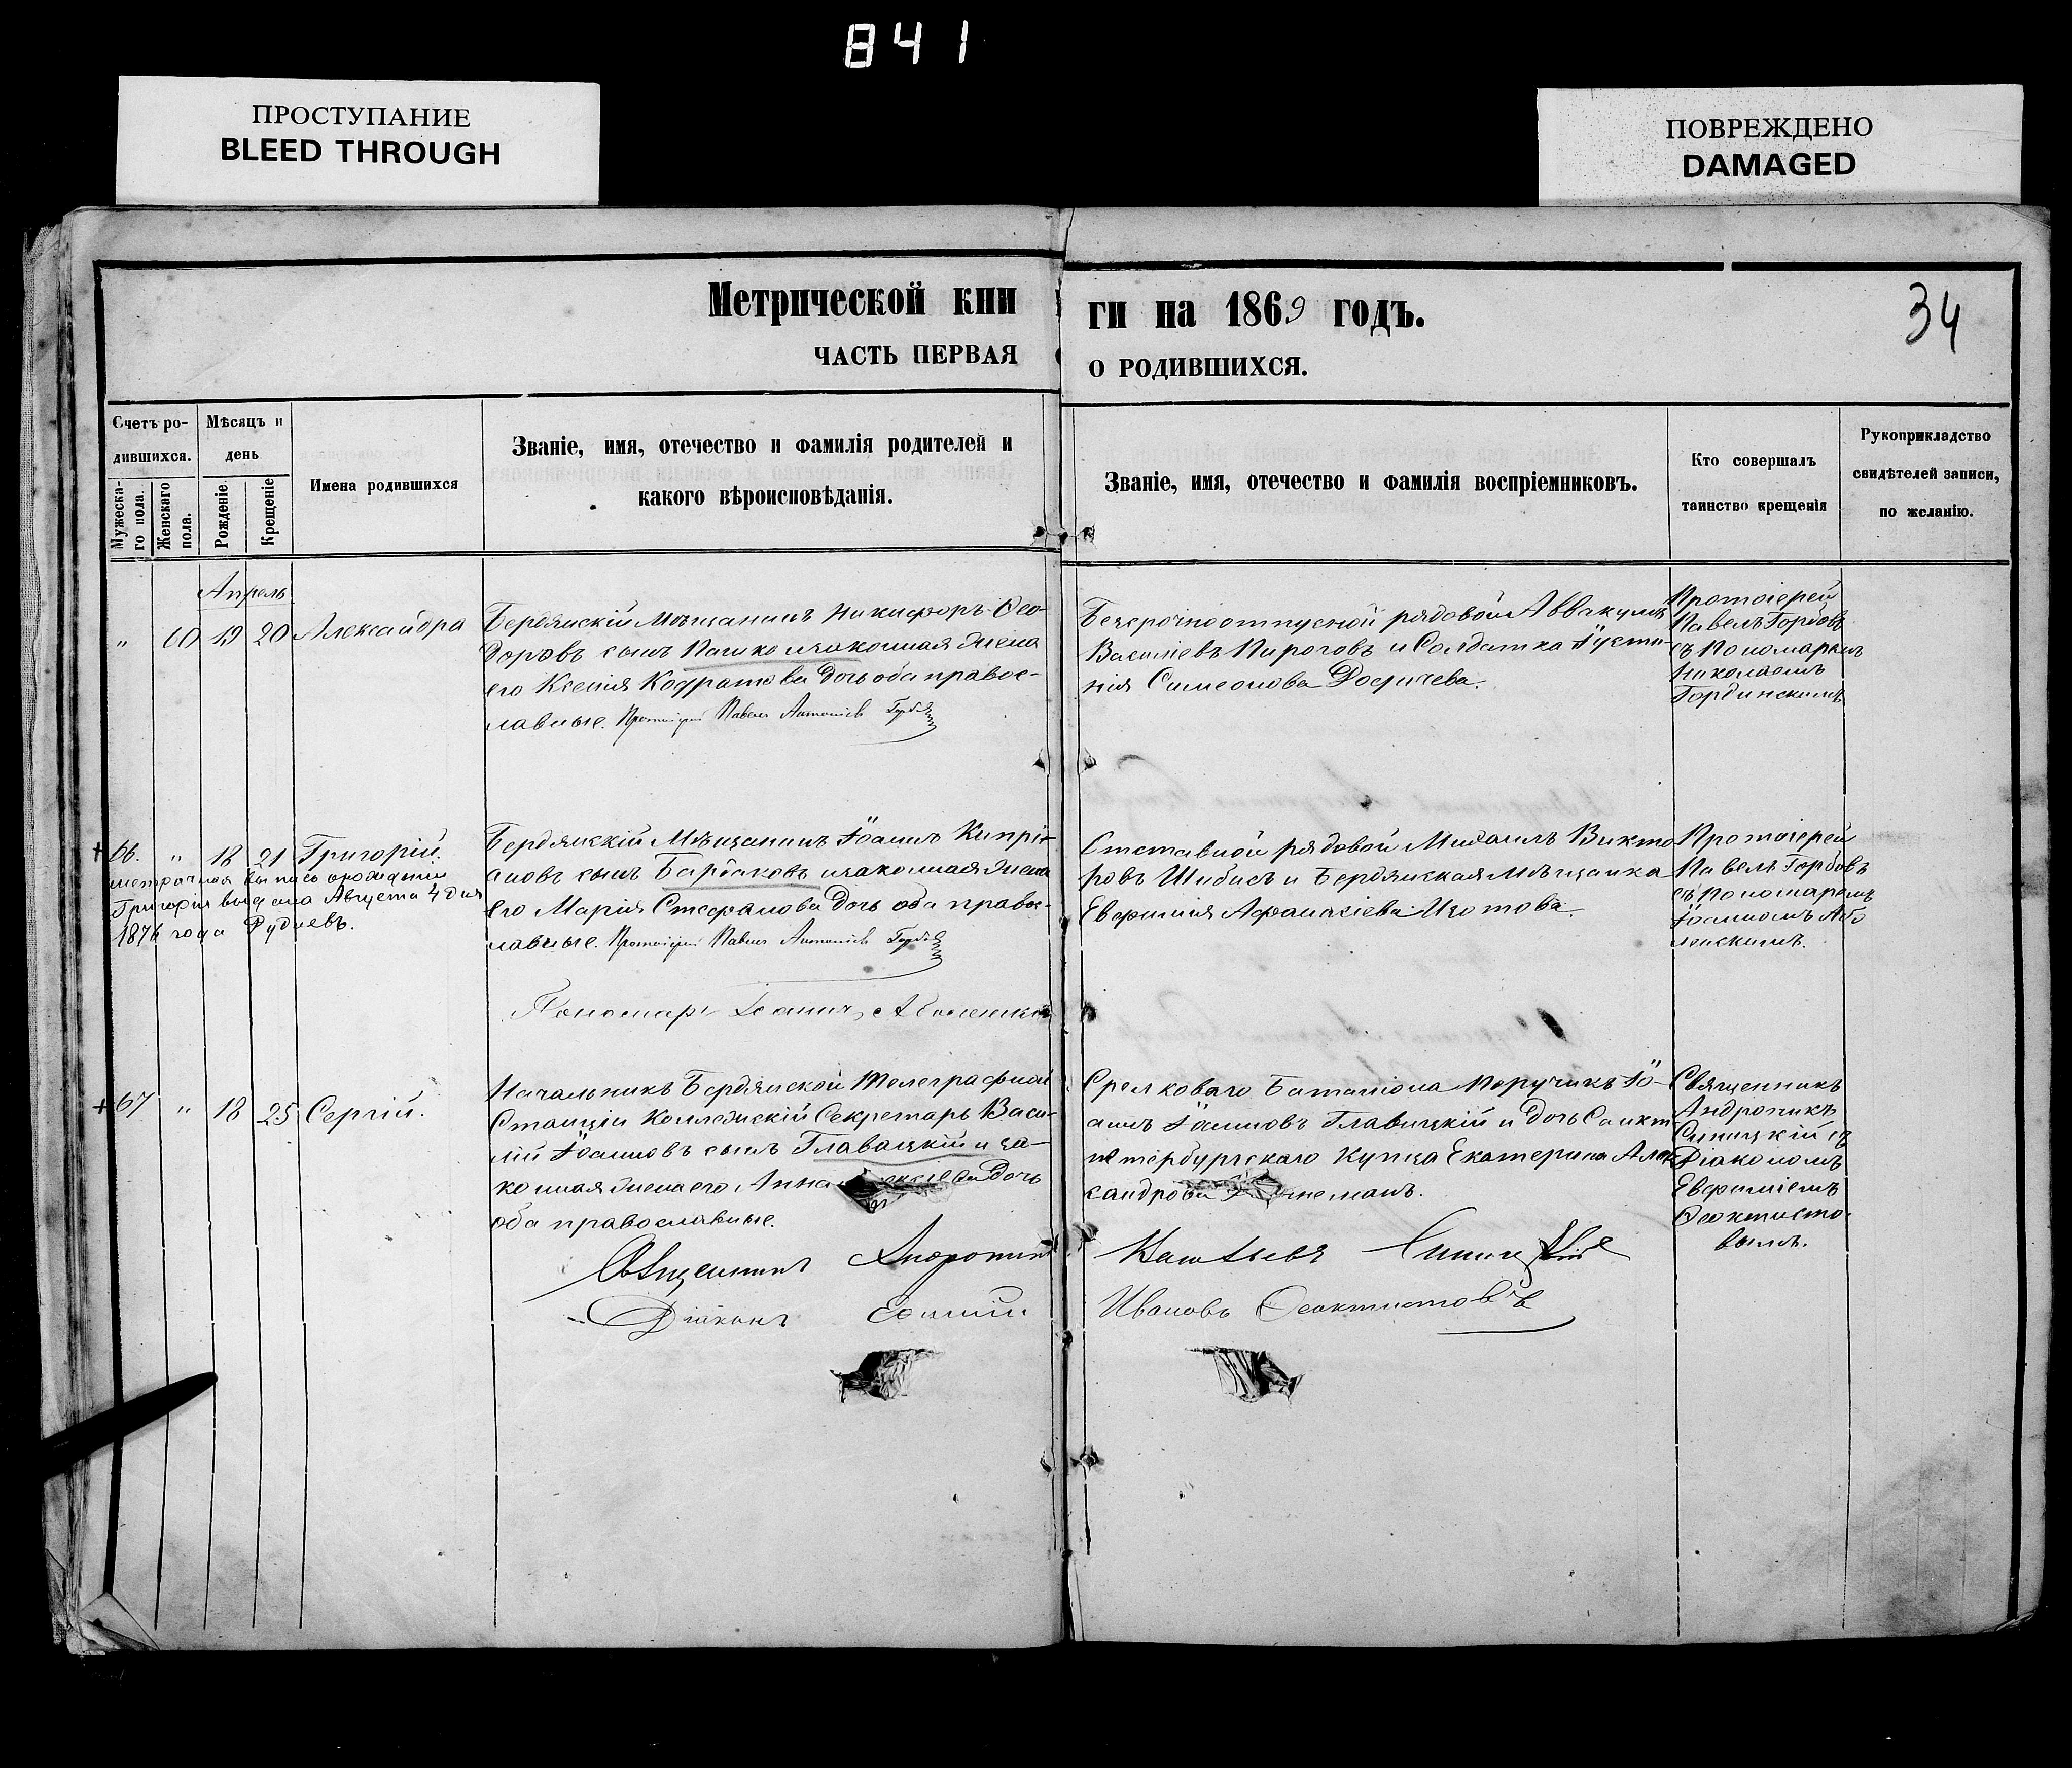 841
ПРОСТУПАНИЕ
BLEED THROUGH
ПОВРЕЖДЕНО
DAMAGED
Метрической кни
ги на 1869 годъ.
34
ЧАСТЬ ПЕРВАЯ
О РОДИВШИХСЯ.
Счетъ ро-
дившихся.
Мужеска-
го пола.
Женскаго
пола.
Мѣсяцъ и
день
Рожденіе.
Крещеніе
Имена родившихся
Званіе, имя, отечество и фамилія родителей и
какого вѣроисповѣданія.
Званіе, имя, отечество и фамилія воспріемниковъ.
Кто совершалъ
таинство крещенія
Рукоприкладство
свидѣтелей записи,
по желанію.
Апрель
" 60 19 20 Александра
Бердянскій Мѣщанинъ Никифоръ Ѳео-
доровъ сынъ Пашко и законная жена
его Ксенія Кодратова дочь оба правос-
лавные. Протоіерей Павелъ Антоніевъ Горбовъ
Безсрочноотпускной рядовой Аввакумъ
Василіевъ Пироговъ и Солдатка Іусти-
нія Симеонова Досичева.
Протоіерей
Павелъ Горбовъ
съ Пономаремъ
Николаемъ
Гординскимъ
+ 66. " 18 21 Григорій.
метрочная выпись о рожденіи
Григорія выдана Августа 4 дня
1876 года Рудневъ.
Бердянскій Мѣщанинъ Іоаннъ Кипрі-
ановъ сынъ Барбаковъ и законная жена
его Марія Стефанова дочь оба правос-
лавные. Протоіерей Павелъ Антоніевъ Горбовъ
Пономарь Іоаннъ
Отставной рядовой Михаилъ Викто
ровъ Шибисъ и Бердянская Мѣщанка
Евфимія Афанасіева Изотова.
Протоіерей
Павелъ Горбовъ
съ Пономаремъ
Іоанномъ Або
ленскимъ.
+ 67 " 18 25 Сергій.
Начальникъ Бердянской Телеграфной
Станціи Коллежскій Секретарь Васи-
лій Іоанновъ сынъ Главацкій и за-
конная жена его Анна дочь
оба православные.
Стрелковаго Баталіона Поручикъ Іо-
аннъ Іоанновъ Главицкій и дочь Санкт
петербургскаго Купца Екатерина Алек
сандрова
Священникъ
Андроникъ
Синицкій съ
Діакономъ
Евфиміемъ
Ѳеоктисто-
вымъ.
Священникъ Андроникъ Синицкій
Діаконъ Ефимій Ивановъ Ѳеоктистовъ